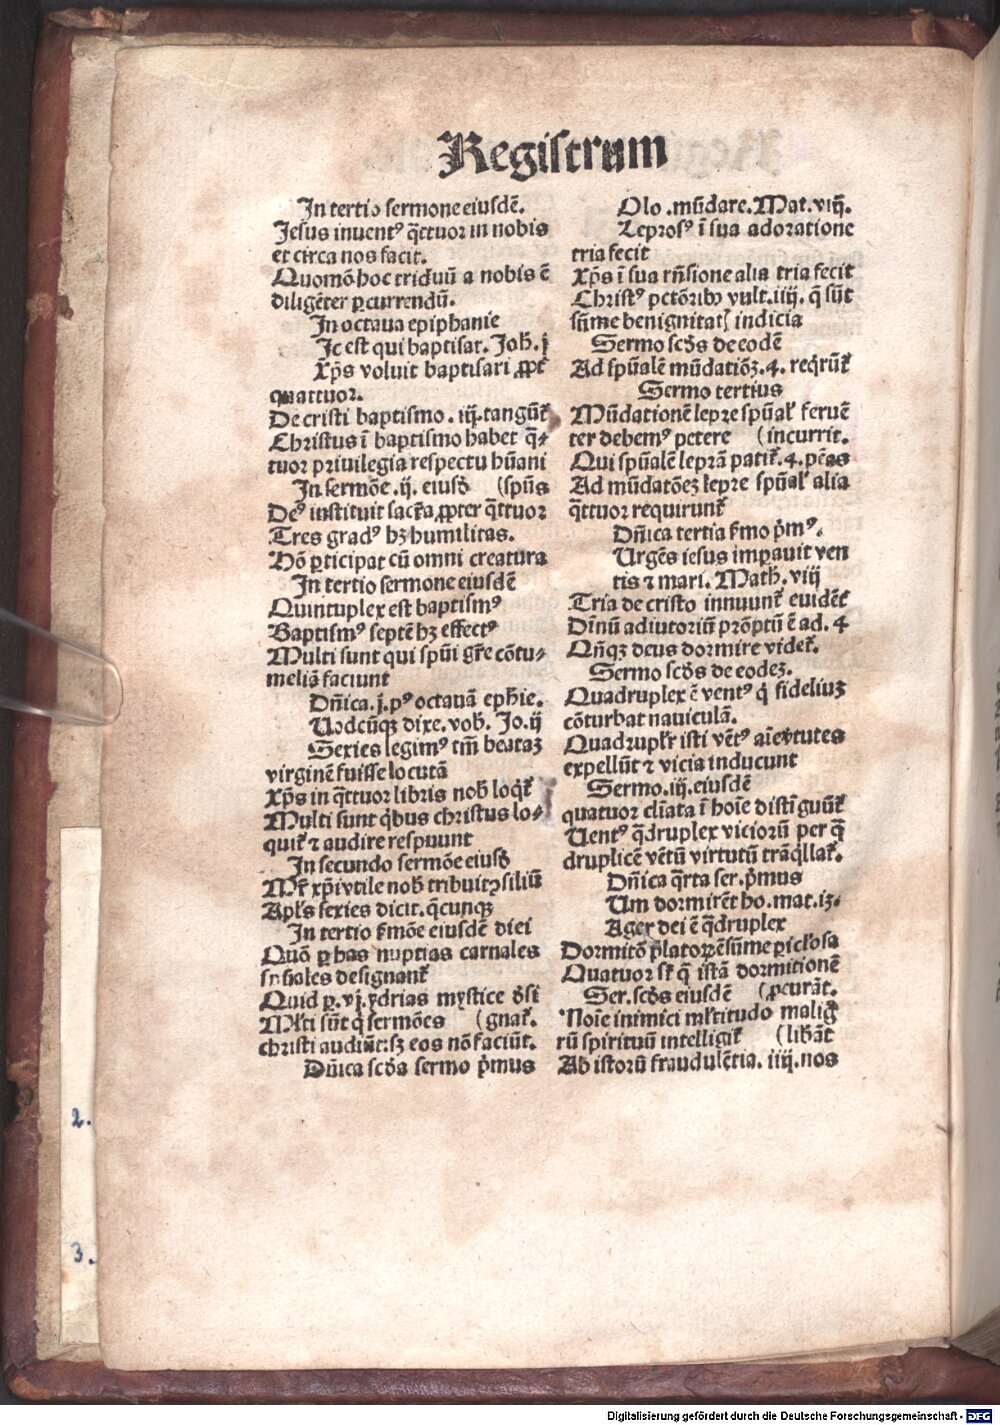 Registrum
In tertio sermone eiusdē.
Jesus inuentꝰ q̄ttuor in nobis
et circa nos facit.
Quomō hoc triduū a nobis ē
diligēter ꝑcurrendū.
In octaua epiphanie
Ic est qui baptisat. Joh̄. j
Xp̄s voluit baptisari ꝓpt̄
quattuor.
De cristi baptismo. iiij. tangūt̄
Christus ī baptismo habet q̄⸗
tuor priuilegia respectu hūani
In sermōe .ij. eiusd̄ (spūs
Deꝰ instituit sacr̄a ꝓpter q̄ttuor
Tres gradꝰ hꝫ humilitas.
Hō ꝑticipat cū omni creatura
In tertio sermone eiusdē
Quintuplex est baptismꝰ
Baptismꝰ septē hꝫ effectꝰ
Multi sunt qui spūi gr̄e cōtu⸗
meliā faciunt
Dn̄ica. j. pꝰ octauā eph̄ie.
Uodcūqꝫ dixe. vob̄. Jo. ij
Sexies legimꝰ tm̄ beataꝫ
virginē fuisse locutā
Xp̄s in q̄ttuor libris nob̄ loqt̄
Multi sunt qbus christus lo⸗
quit̄ ⁊ audire respuunt
In secundo sermōe eiusd̄
Mr̄ xp̄i vtile nob̄ tribuit ꝯsiliū
Apl̄s sexies dicit. q̄cunqꝫ
In tertio s̄mōe eiusdē diei
Quō ꝑ has nuptias carnales
spūales designant̄
Quid ꝑ. vj. ydrias mystice d̄si
Ml̄ti sūt q̄ sermōes (gnat̄.
christi audiūt: sꝫ eos nō faciūt.
Dn̄ica scd̄a sermo p̄mus
Olo .mūdare. Mat. viij.
Leprosꝰ ī sua adoratione
tria fecit
Xp̄s ī sua rn̄sione alia tria fecit
Christꝰ pctōribꝰ vult. iiij. q̄ sūt
sūme benignitatꝭ indicia
Sermo scd̄s de eodē
Ad spūalē mūdatiōꝫ. 4. reqrūt̄
Sermo tertius
Mūdationē lepre spūal̄ feruē
ter debemꝰ petere (incurrit.
Qui spūalē leprā patit̄. 4. pēas
Ad mūdatōeꝫ lepre spūal̄ alia
q̄ttuor requirunt̄
Dn̄ica tertia s̄mo p̄mꝰ.
Urgēs iesus impauit ven
tis ⁊ mari. Math̄. viij
Tria de cristo innuunt̄ euidēt̄
Diuinū adiutoriū prōptū ē ad. 4
Qn̄qꝫ deus dormire videt̄.
Sermo scd̄s de eodeꝫ.
Quadruplex ē ventꝰ q fideliuꝫ
cōturbat nauiculā.
Quadrupl̄r isti vētꝰ aīe v̄tutes
expellūt ⁊ vicia inducunt
Sermo. iij. eiusdē
quatuor clīata ī hoīe distīguūt̄
Uentꝰ q̄druplex viciorū per q̄
druplicē vētū virtutū trāqllat̄.
Dn̄ica q̄rta ser. p̄mus
Um dormirēt ho. mat. 13.
Ager dei ē q̄druplex
Dormitō p̄latoꝝ ē sūme ꝑicl̄osa
Quatuor st̄ q̄ istā dormitionē
Ser. scd̄s eiusdē (ꝓcurāt.
Noīe inimici ml̄titudo malig
rū spirituū intelligit̄ (liberāt
Ab istorū fraudulētia. iiij. nos
2.
3.
Digitalisierung gefördert durch die Deutsche Forschungsgemeinschaft - DFG